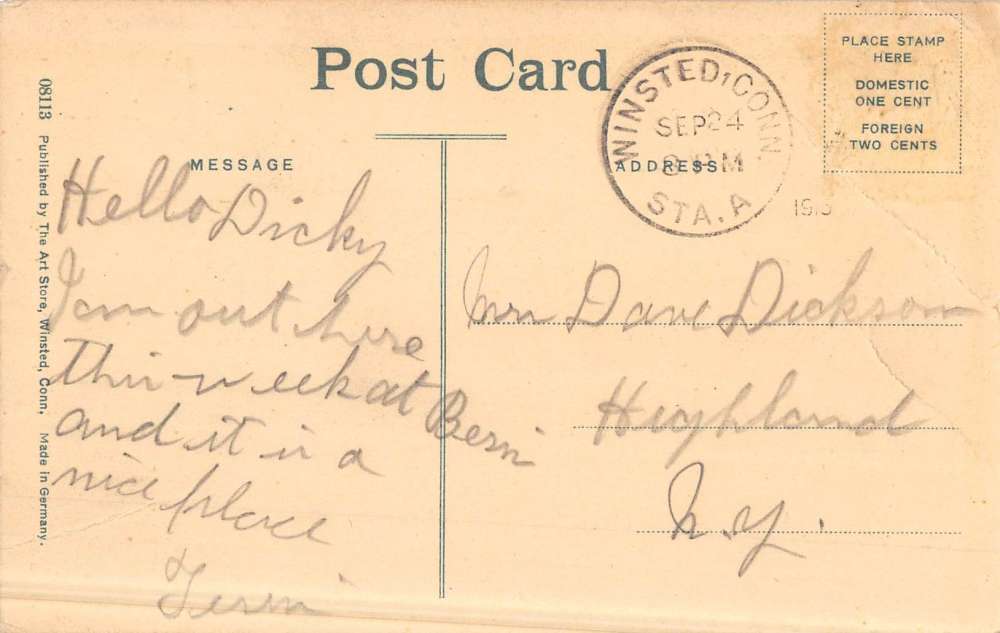 Post Card
PLACE STAMP
HERE
DOMESTIC
ONE CENT
FOREIGN
TWO CENTS
WINSTED, CONN.
SEP 24
STA. A
MESSAGE
ADDRESS
08113 Published by The Art Store, Winsted, Conn. Made in Germany.
Hello Dicky
I am out here
this week at
and it is a
nice place
Dave Dickson
Highland
N.Y.